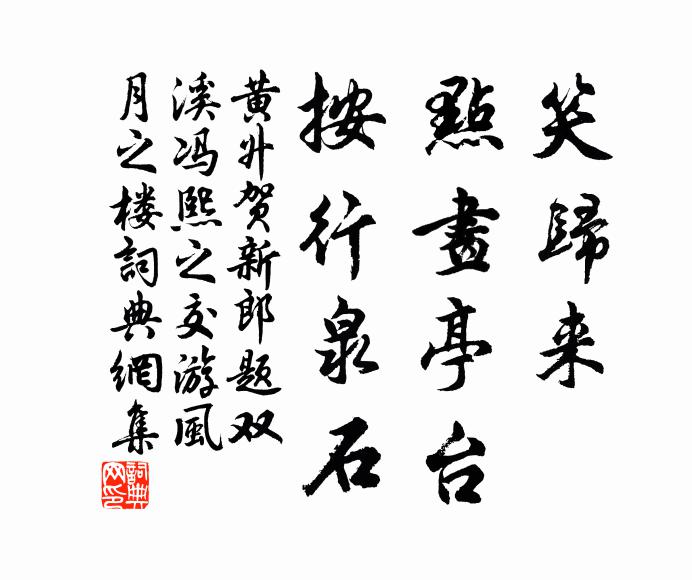 笑歸来
點畫亭台
按行泉石
黄升贺新郎题双
溪冯熙之交游風
月之楼詞典網集
詞典网印